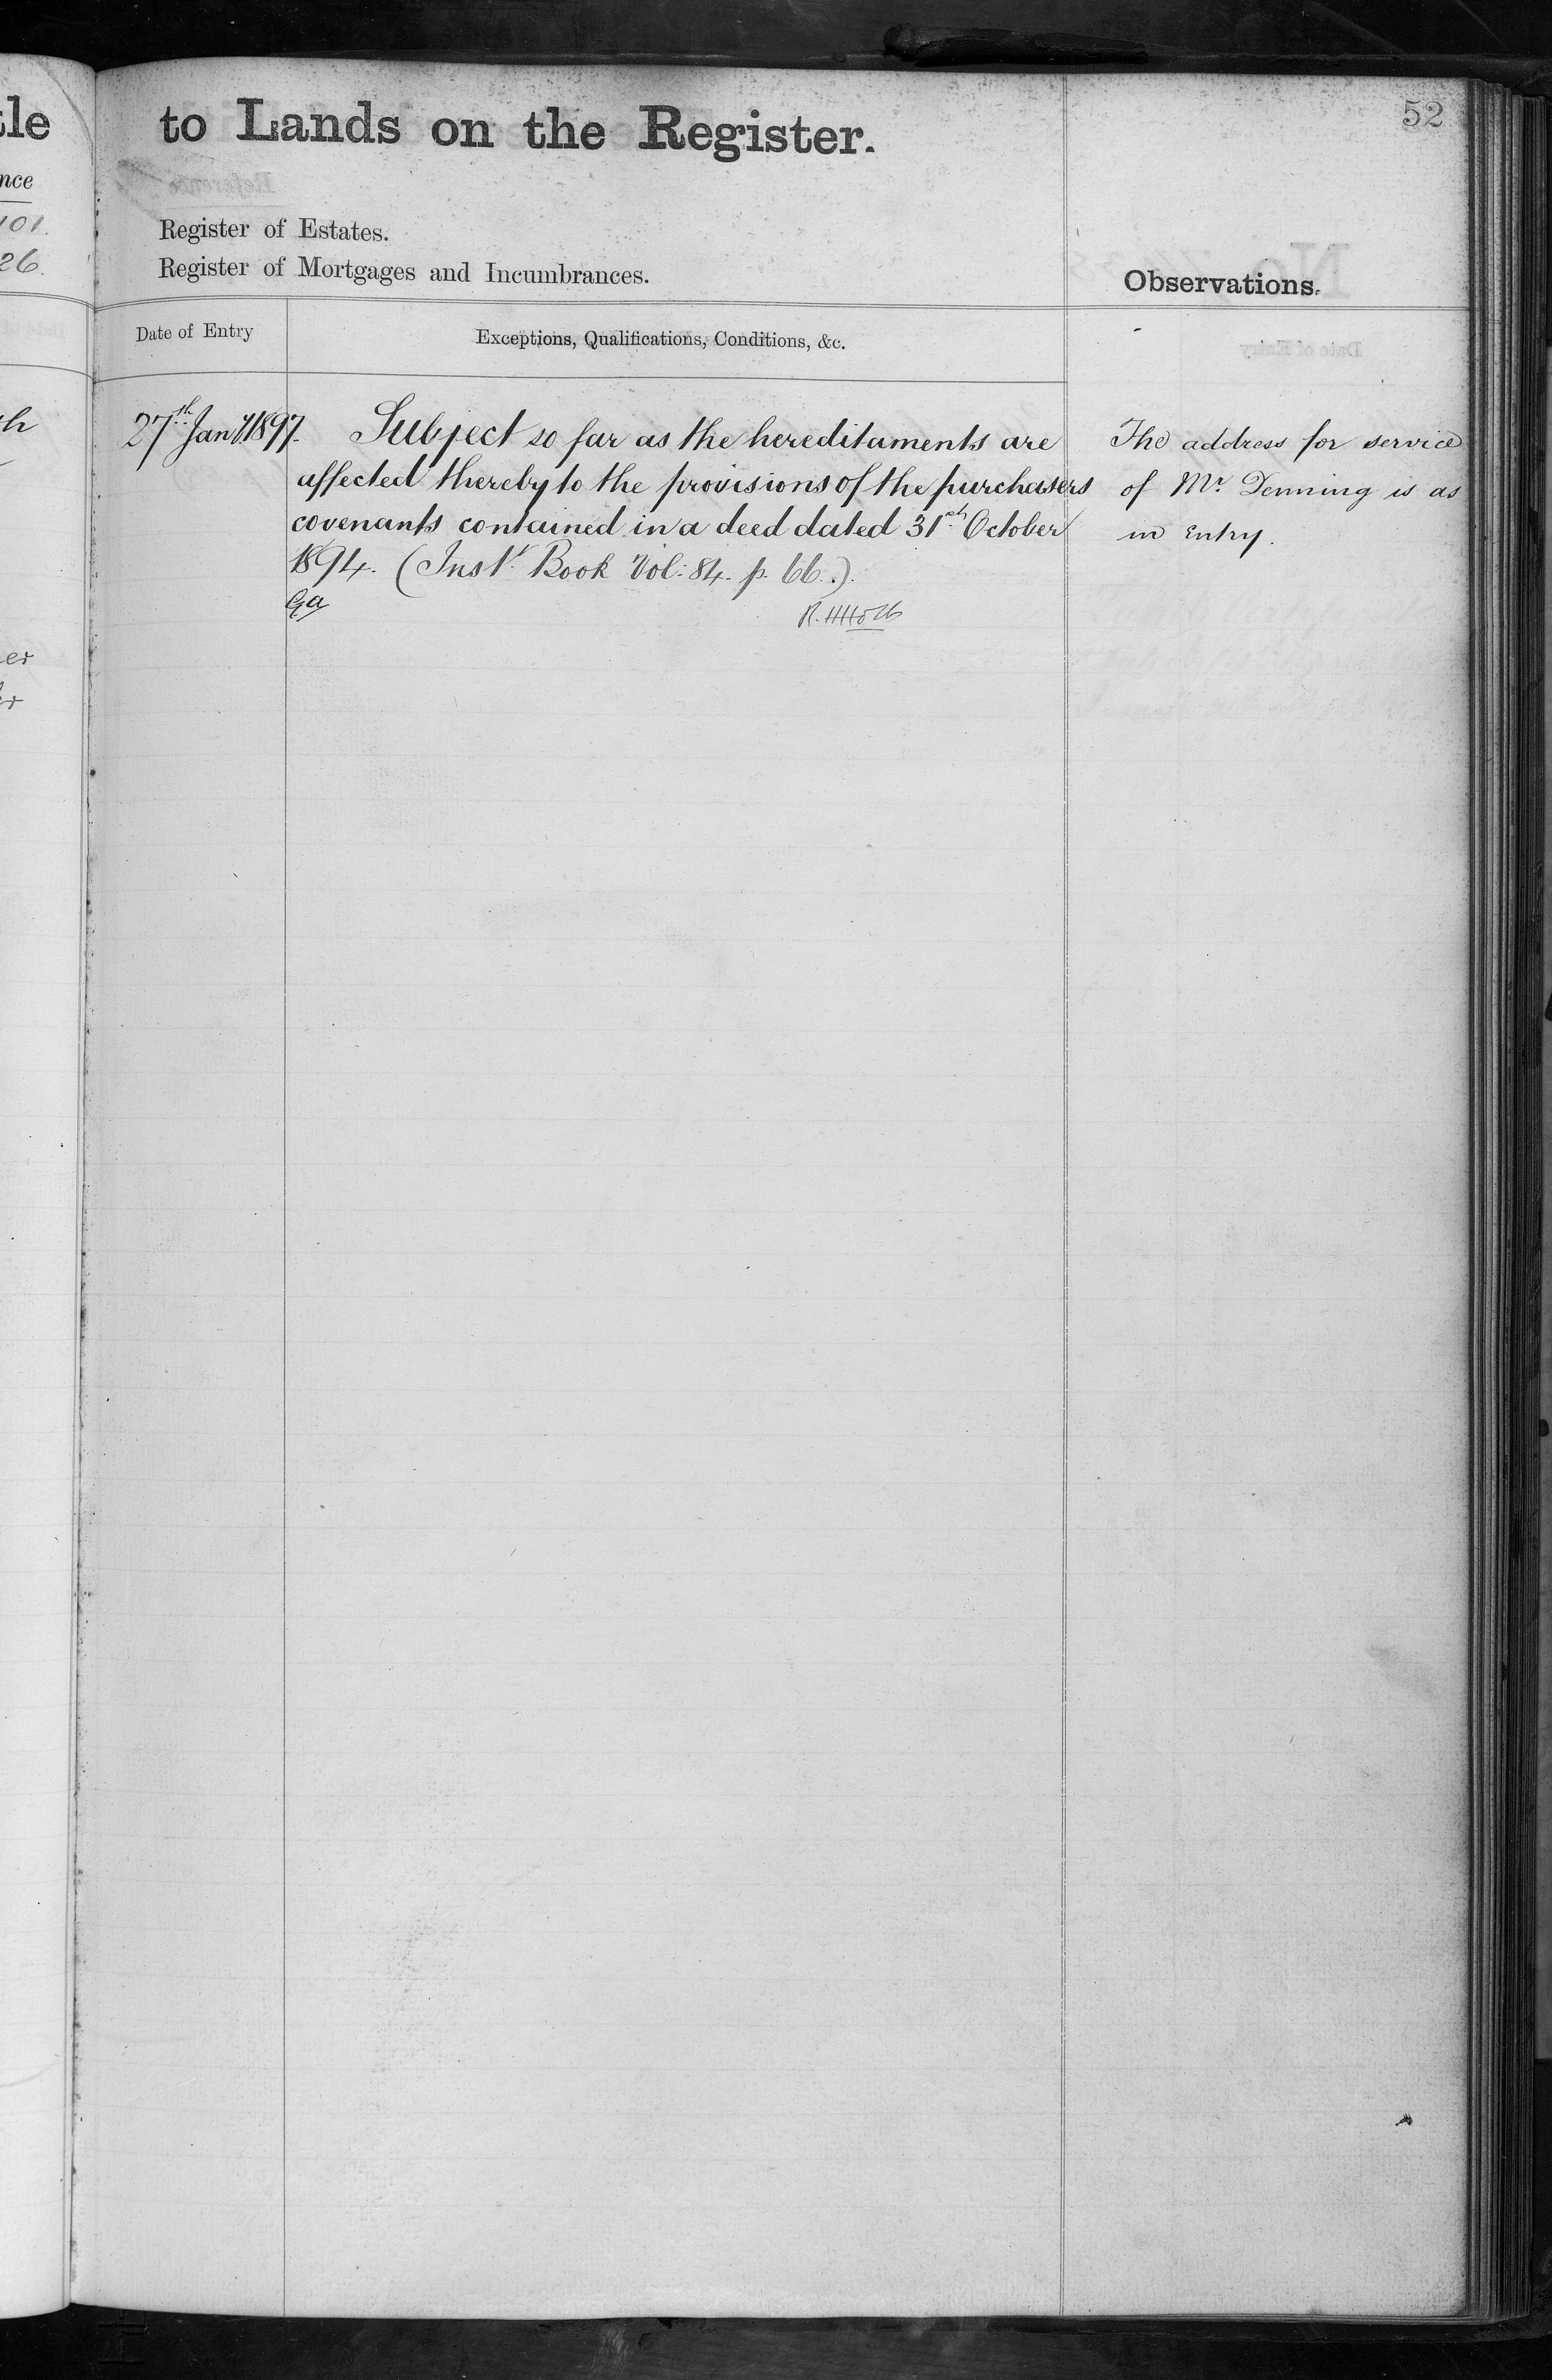 tle
to Lands on the Register.
52
nce
101.
26.
Register of Estates.
Register of Mortgages and Incumbrances.
Observations.
Date of Entry
Exceptions, Qualifications, Conditions, &c.
27th Jany 1897.
Subject so far as the hereditaments are
affected thereby to the provisions of the purchasers
covenants contained in a deed dated 31st October
1894. (Inst. Book Vol: 84. p. 66.).
Ga
The address for service
of Mr. Denning is as
in Entry.